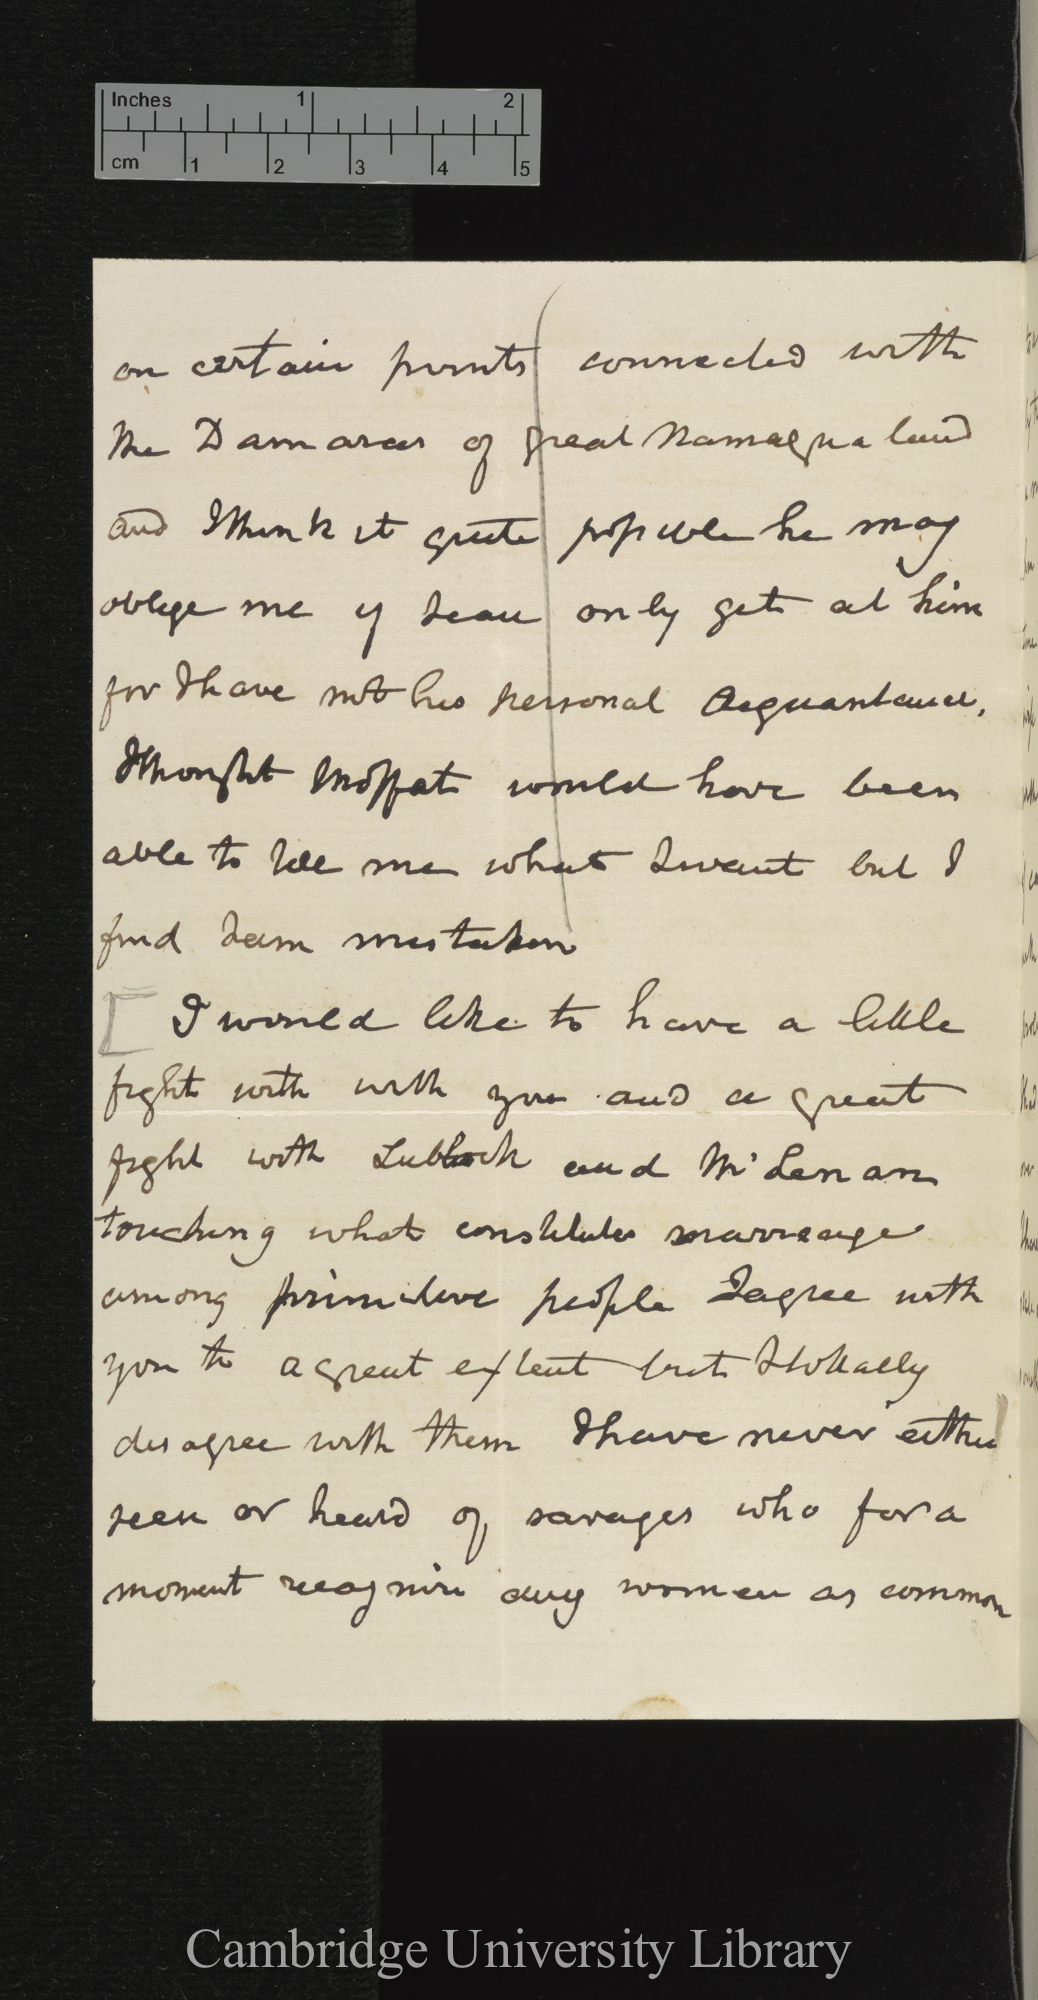 Inches 1 2
cm 1 2 3 4 5
on certain points connected with
the Damaras of great Namaqua land
and I think it quite possible he may
oblige me if I can only get at him
for I have not his personal acquaintance,
I thought Moffat would have been
able to tell me what I want but I
find I am mistaken
[ I would like to have a little
fight with with you and a great
fight with Lubbock and McLenan
touching what constitutes marriage
among primitive people I agree with
you to a great extent but I totally
disagree with them I have never either
seen or heard of savages who for a
moment recognise any women as common
Cambridge University Library